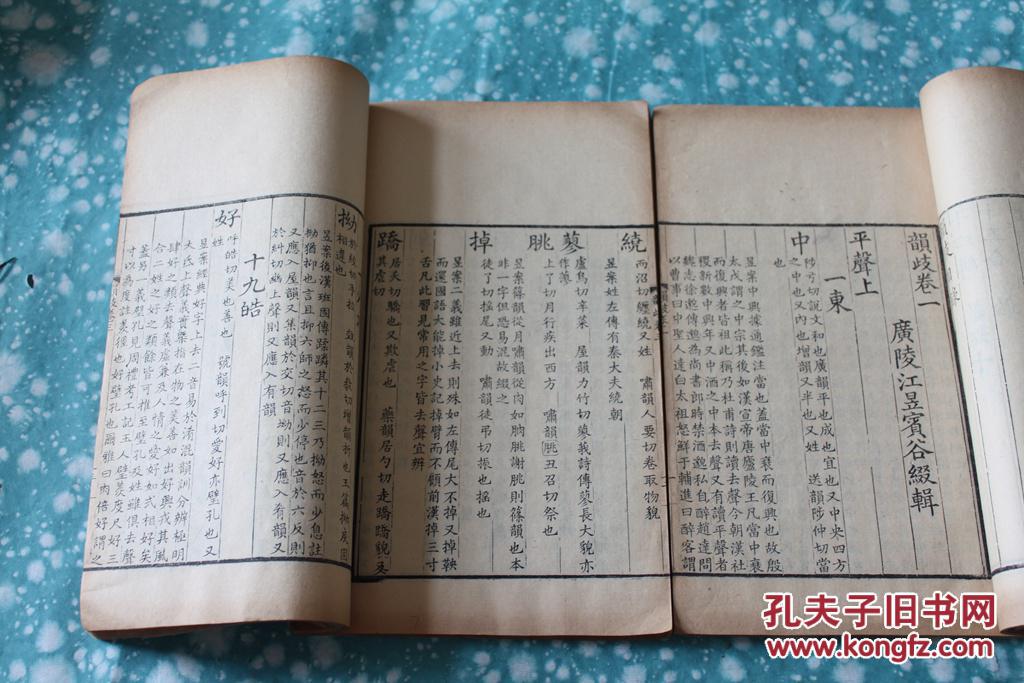 韻歧卷一
廣陵江昱賓谷綴輯
平聲上
一東
中
陟弓切說文和也廣韻平也成也宜也又中央四方
之中也又內也增韻又半也又姓 送韻陟仲切當
也
昱案中興據通鑑注當也蓋當中衰而復興也故殷
太戊謂之中宗其後如漢宣帝唐廬陵王凡當中衰
而復興者皆祖此稱乃杜甫詩則讀去聲今朝漢社
稷新數中興年又中酒之中本去聲又有讀平聲者
魏志徐邈傳邈為尚書郎時禁酒邈私自醉趙達問
以曹事曰中聖人達白太祖怒鮮于輔進曰醉客謂
繞
而沼切纏繞又姓 嘯韻人要切卷取物貌
昱案姓左傳有秦大夫繞朝
蓼
盧鳥切辛菜 屋韻力竹切蓼莪詩傳蓼長大貌亦
作蓼
朓
土了切月行疾出西方 嘯韻朓丑召切祭也
昱案篠韻從月嘯韻從肉如朒朓謝朓則篠韻也本
非一字但恐易混故綴此
掉
徒了切搖尾又動 嘯韻徒弔切振也搖也
昱案二義雖近上去則殊如左傳尾大不掉又掉鞅
而還國語大能掉小史記掉臂而不顧前漢掉三寸
舌凡此習見常用之字皆去聲宜辨
蹻
居夭切驕也又欺虐也 藥韻居勺切走蹻蹻貌又
其虐切
拗
相違也
昱案後漢班固傳蹂躪其十二三乃拗怒而少息註
拗猶抑也言且抑六師之怒而少停也音於六反則
又應入屋韻又集韻於交切音坳則又應入肴韻又
於糾切幼上聲則又應入有韻
十九皓
好
呼皓切美也善也 號韻呼到切愛好亦璧孔也又
姓
昱案經典好字上去二音易於淆混韻訓分辨極明
大氐上聲義實槩指在物之美善如出好興戎其風
肆好之類去聲義虛兼及人情之愛好如式相好矣
合二姓之好之類餘皆可推至璧孔及姓雖俱去聲
蓋另一義璧孔見周禮考工記玉人璧羨度尺好三
寸以為度註羨徑也好璧孔也爾雅曰肉倍好謂之
孔夫子旧书网
www.kongfz.com